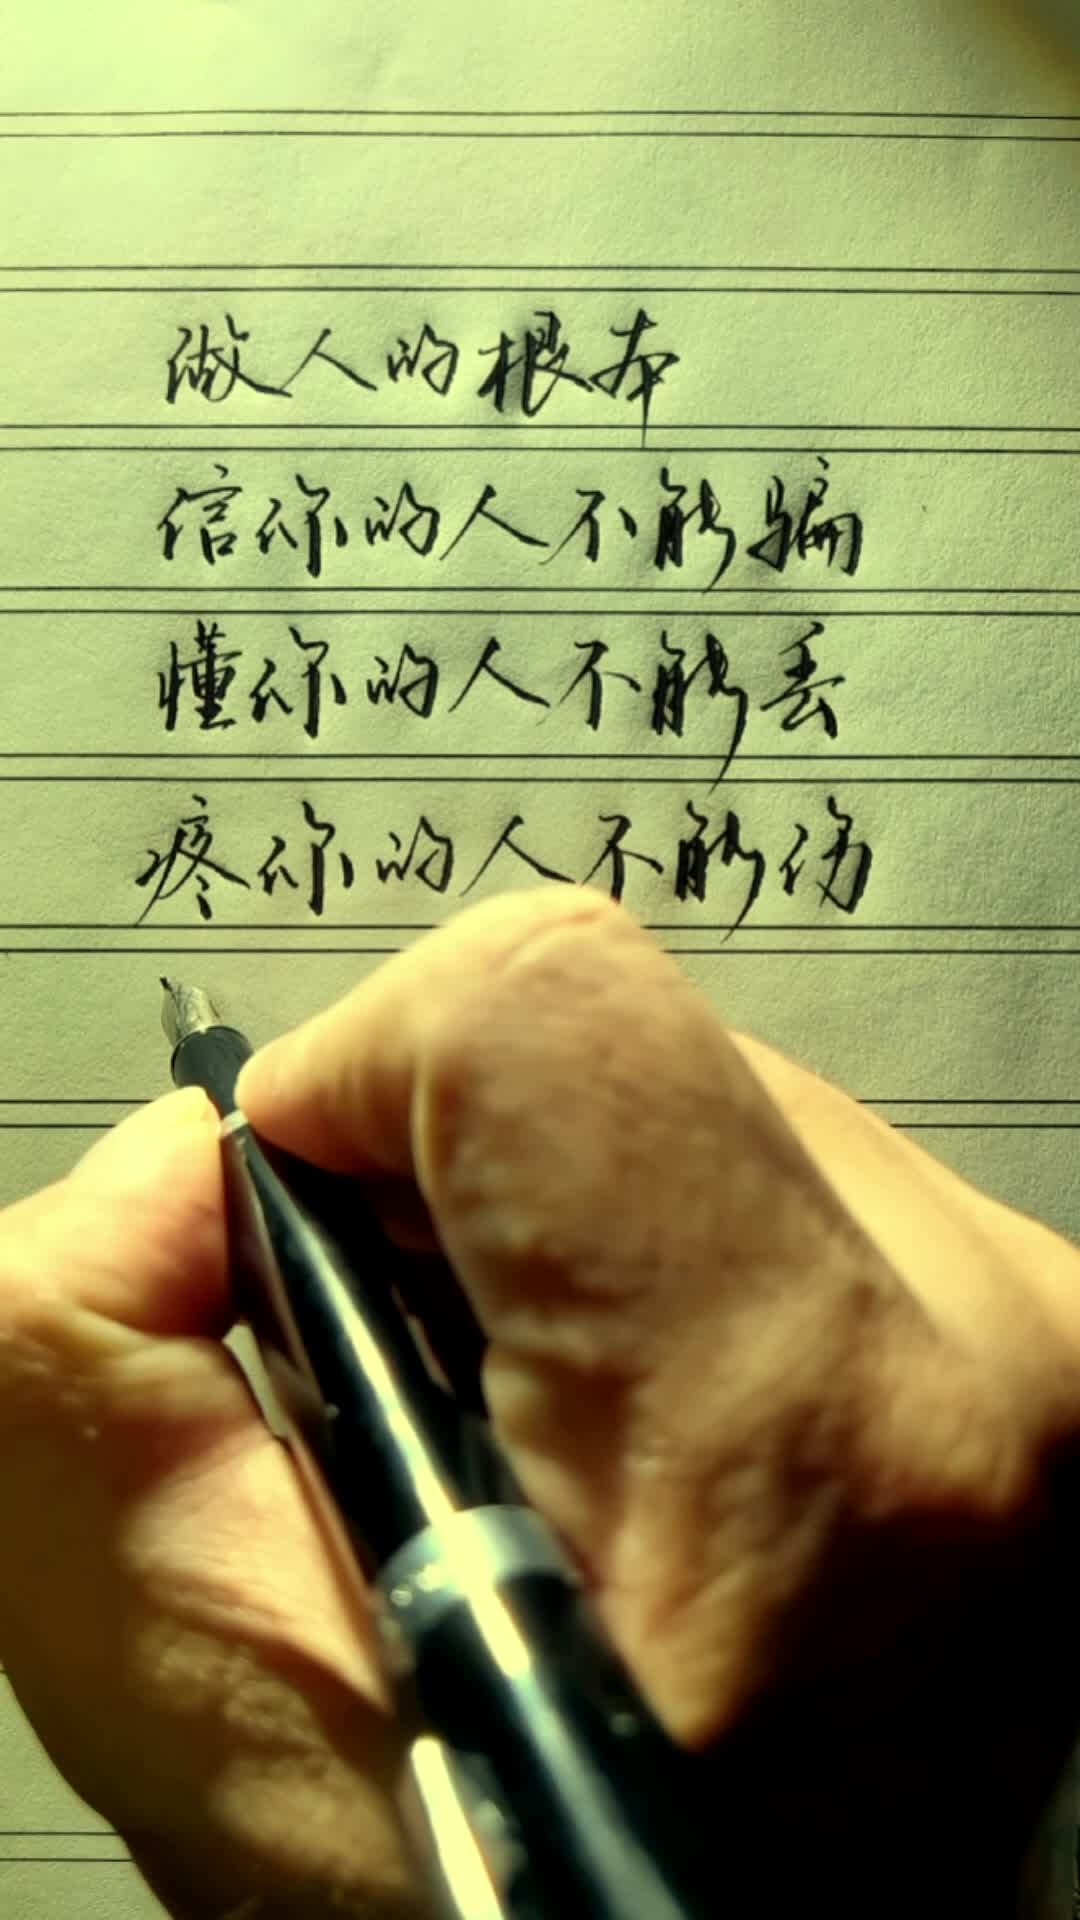 做人的根本
信你的人不能骗
懂你的人不能丢
疼你的人不能伤